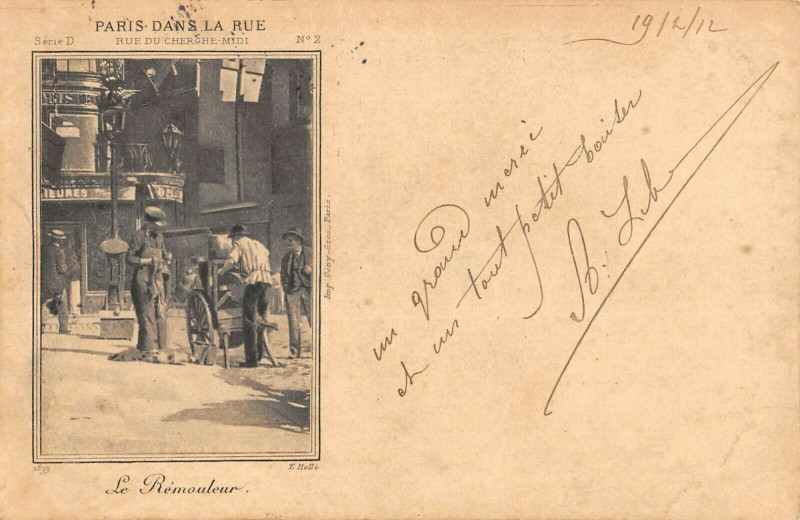 PARIS DANS LA RUE
Série D RUE DU CHERCHE-MIDI Nº 2
IEURES
Imp. Geny-Gros_Paris.
E. Hellé
Le Rémouleur.
19/2/12
un grand merci
et un tout petit baiser